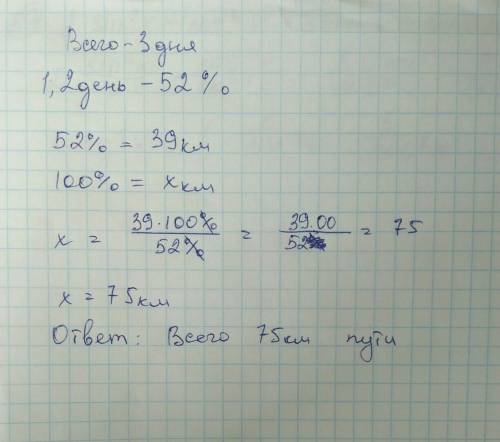 Всего - 3 дня
1,2 день - 52%
52% = 39 км
100% = x км
x = 39·100% / 52% = 39.00 / 52 = 75
x = 75 км
Ответ: Всего 75 км пути